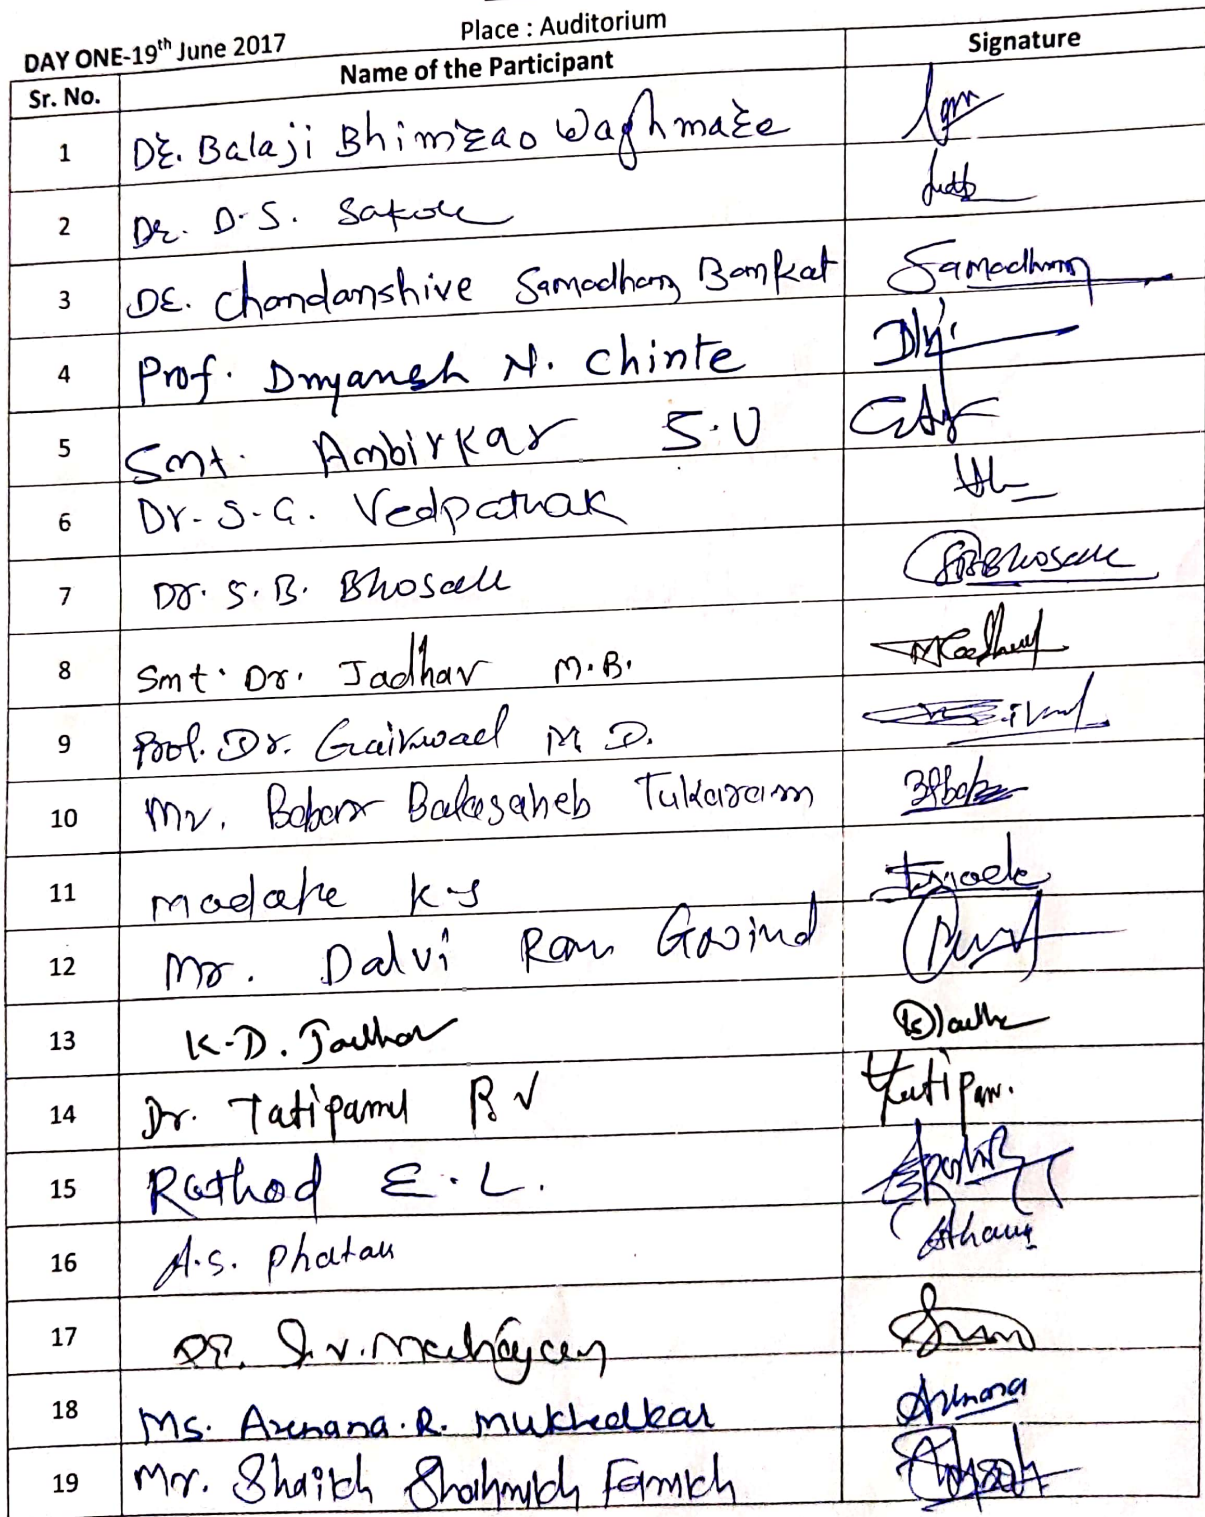 Place : Auditorium
DAY ONE-19th June 2017
Sr. No. Name of the Participant Signature
1 Dr. Balaji Bhimrao Waghmare
2 Dr. D.S. Sakole
3 Dr. Chandanshive Samadhan Bankat Samadhan
4 Prof. Dnyanesh N. Chinte
5 Smt. Ambirkar S.U
6 Dr. S.G. Vedpathak
7 Dr. S.B. Bhosale SBBhosale
8 Smt. Dr. Jadhav M.B.
9 Prof. Dr. Gaikwad M.D.
10 Mr. Babar Balasaheb Tukaram
11 Madake K S
12 Mr. Dalvi Ram Govind
13 K.D. Jadhav
14 Dr. Tatipamul R V Tatipam.
15 Rathod E.L.
16 A.S. Phatak
17 Dr. S.V. Mahajan
18 Ms. Archana.R. Mukhedkar Archana
19 Mr. Shaikh